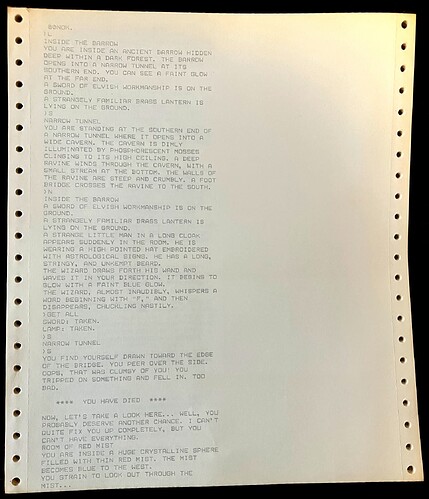 BOHOM.
>L
INSIDE THE BARROW
YOU ARE INSIDE AN ANCIENT BARROW HIDDEN
DEEP WITHIN A DARK FOREST. THE BARROW
OPENS INTO A NARROW TUNNEL AT ITS
SOUTHERN END. YOU CAN SEE A FAINT GLOW
AT THE FAR END.
A SWORD OF ELVISH WORKMANSHIP IS ON THE
GROUND.
A STRANGELY FAMILIAR BRASS LANTERN IS
LYING ON THE GROUND.
>S
NARROW TUNNEL
YOU ARE STANDING AT THE SOUTHERN END OF
A NARROW TUNNEL WHERE IT OPENS INTO A
WIDE CAVERN. THE CAVERN IS DIMLY
ILLUMINATED BY PHOSPHORESCENT MOSSES
CLINGING TO ITS HIGH CEILING. A DEEP
RAVINE WINDS THROUGH THE CAVERN, WITH A
SMALL STREAM AT THE BOTTOM. THE WALLS OF
THE RAVINE ARE STEEP AND CRUMBLY. A FOOT
BRIDGE CROSSES THE RAVINE TO THE SOUTH.
>N
INSIDE THE BARROW
A SWORD OF ELVISH WORKMANSHIP IS ON THE
GROUND.
A STRANGELY FAMILIAR BRASS LANTERN IS
LYING ON THE GROUND.
A STRANGE LITTLE MAN IN A LONG CLOAK
APPEARS SUDDENLY IN THE ROOM. HE IS
WEARING A HIGH POINTED HAT EMBROIDERED
WITH ASTROLOGICAL SIGNS. HE HAS A LONG,
STRINGY, AND UNKEMPT BEARD.
THE WIZARD DRAWS FORTH HIS WAND AND
WAVES IT IN YOUR DIRECTION. IT BEGINS TO
GLOW WITH A FAINT BLUE GLOW.
THE WIZARD, ALMOST INAUDIBLY, WHISPERS A
WORD BEGINNING WITH "F," AND THEN
DISAPPEARS, CHUCKLING NASTILY.
>GET ALL
SWORD: TAKEN.
LAMP: TAKEN.
>S
NARROW TUNNEL
>S
YOU FIND YOURSELF DRAWN TOWARD THE EDGE
OF THE BRIDGE. YOU PEER OVER THE SIDE.
OOPS, THAT WAS CLUMSY OF YOU! YOU
TRIPPED ON SOMETHING AND FELL IN. TOO
BAD.
**** YOU HAVE DIED ****
NOW, LET'S TAKE A LOOK HERE... WELL, YOU
PROBABLY DESERVE ANOTHER CHANCE. I CAN'T
QUITE FIX YOU UP COMPLETELY, BUT YOU
CAN'T HAVE EVERYTHING.
ROOM OF RED MIST
YOU ARE INSIDE A HUGE CRYSTALLINE SPHERE
FILLED WITH THIN RED MIST. THE MIST
BECOMES BLUE TO THE WEST.
YOU STRAIN TO LOOK OUT THROUGH THE
MIST...